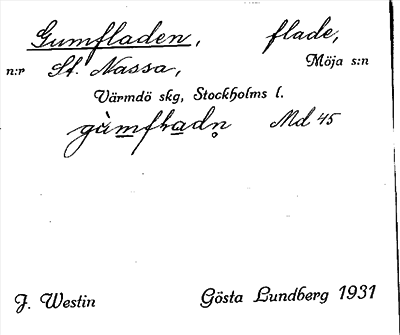 Gumfladen, flade,
n:r St. Nassa, Möja s:n
Värmdö skg, Stockholms l.
gu̇mfladn̥ Md 45
J. Westin Gösta Lundberg 1931